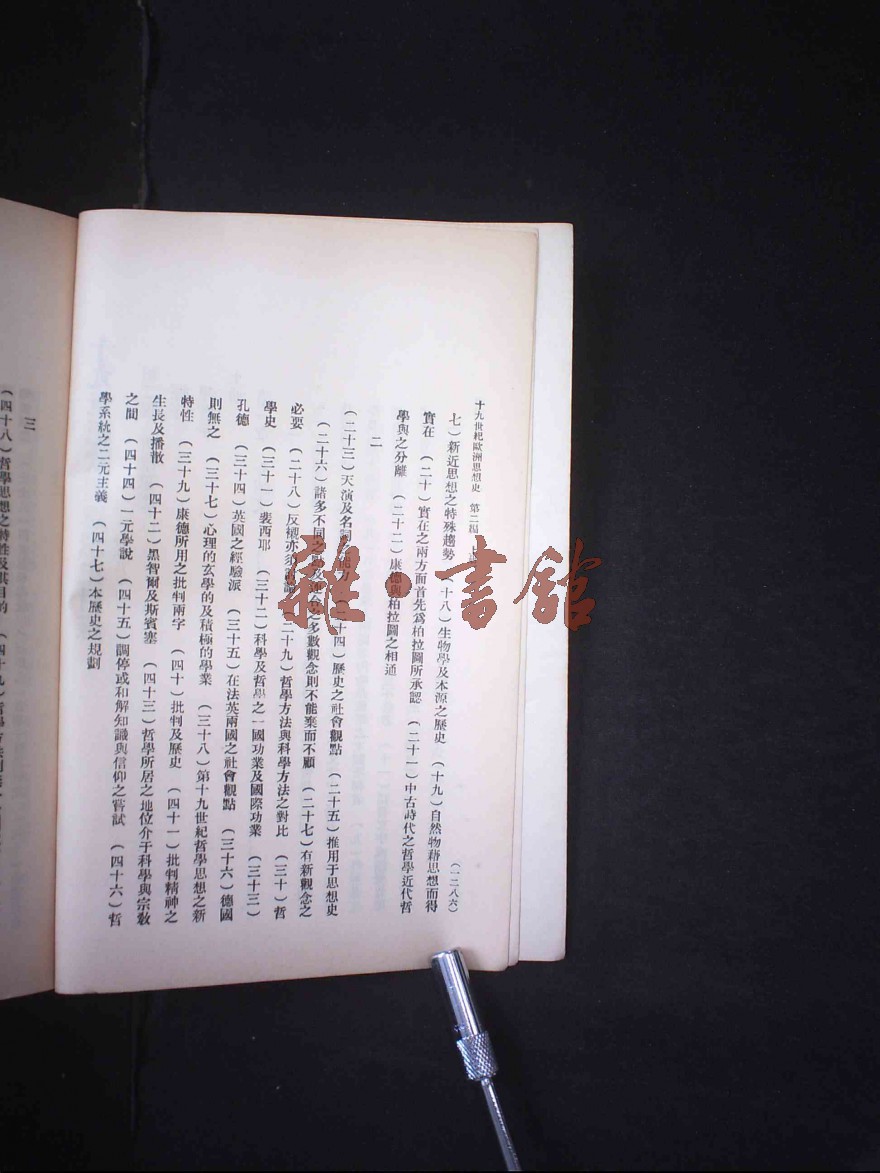 十九世紀歐洲思想史 第二編
(一二八六)
七)新近思想之特殊趨勢 (十八)生物學及本源之歷史 (十九)自然物藉思想而得
實在 (二十)實在之兩方面首先為柏拉圖所承認 (二十一)中古時代之哲學近代哲
學與之分離 (二十二)康德與柏拉圖之相通
二
(二十三)天演及名詞 能力 (二十四)歷史之社會觀點 (二十五)推用于思想史
(二十六)諸多不同之 多數觀念則不能棄而不顧 (二十七)有新觀念之
必要 (二十八)反 亦須 (二十九)哲學方法與科學方法之對比 (三十)哲
學史 (三十一)裴西耶 (三十二)科學及哲學之一國功業及國際功業 (三十三)
孔德 (三十四)英國之經驗派 (三十五)在法英兩國之社會觀點 (三十六)德國
則無之 (三十七)心理的玄學的及積極的學業 (三十八)第十九世紀哲學思想之新
特性 (三十九)康德所用之批判兩字 (四十)批判及歷史 (四十一)批判精神之
生長及播散 (四十二)黑智爾及斯賓塞 (四十三)哲學所居之地位介于科學與宗教
之間 (四十四)一元學說 (四十五)調停或和解知識與信仰之嘗試 (四十六)哲
學系統之二元主義 (四十七)本歷史之規劃
三
(四十八)哲學思想之特性及其目的 (四十九)
雜·書館